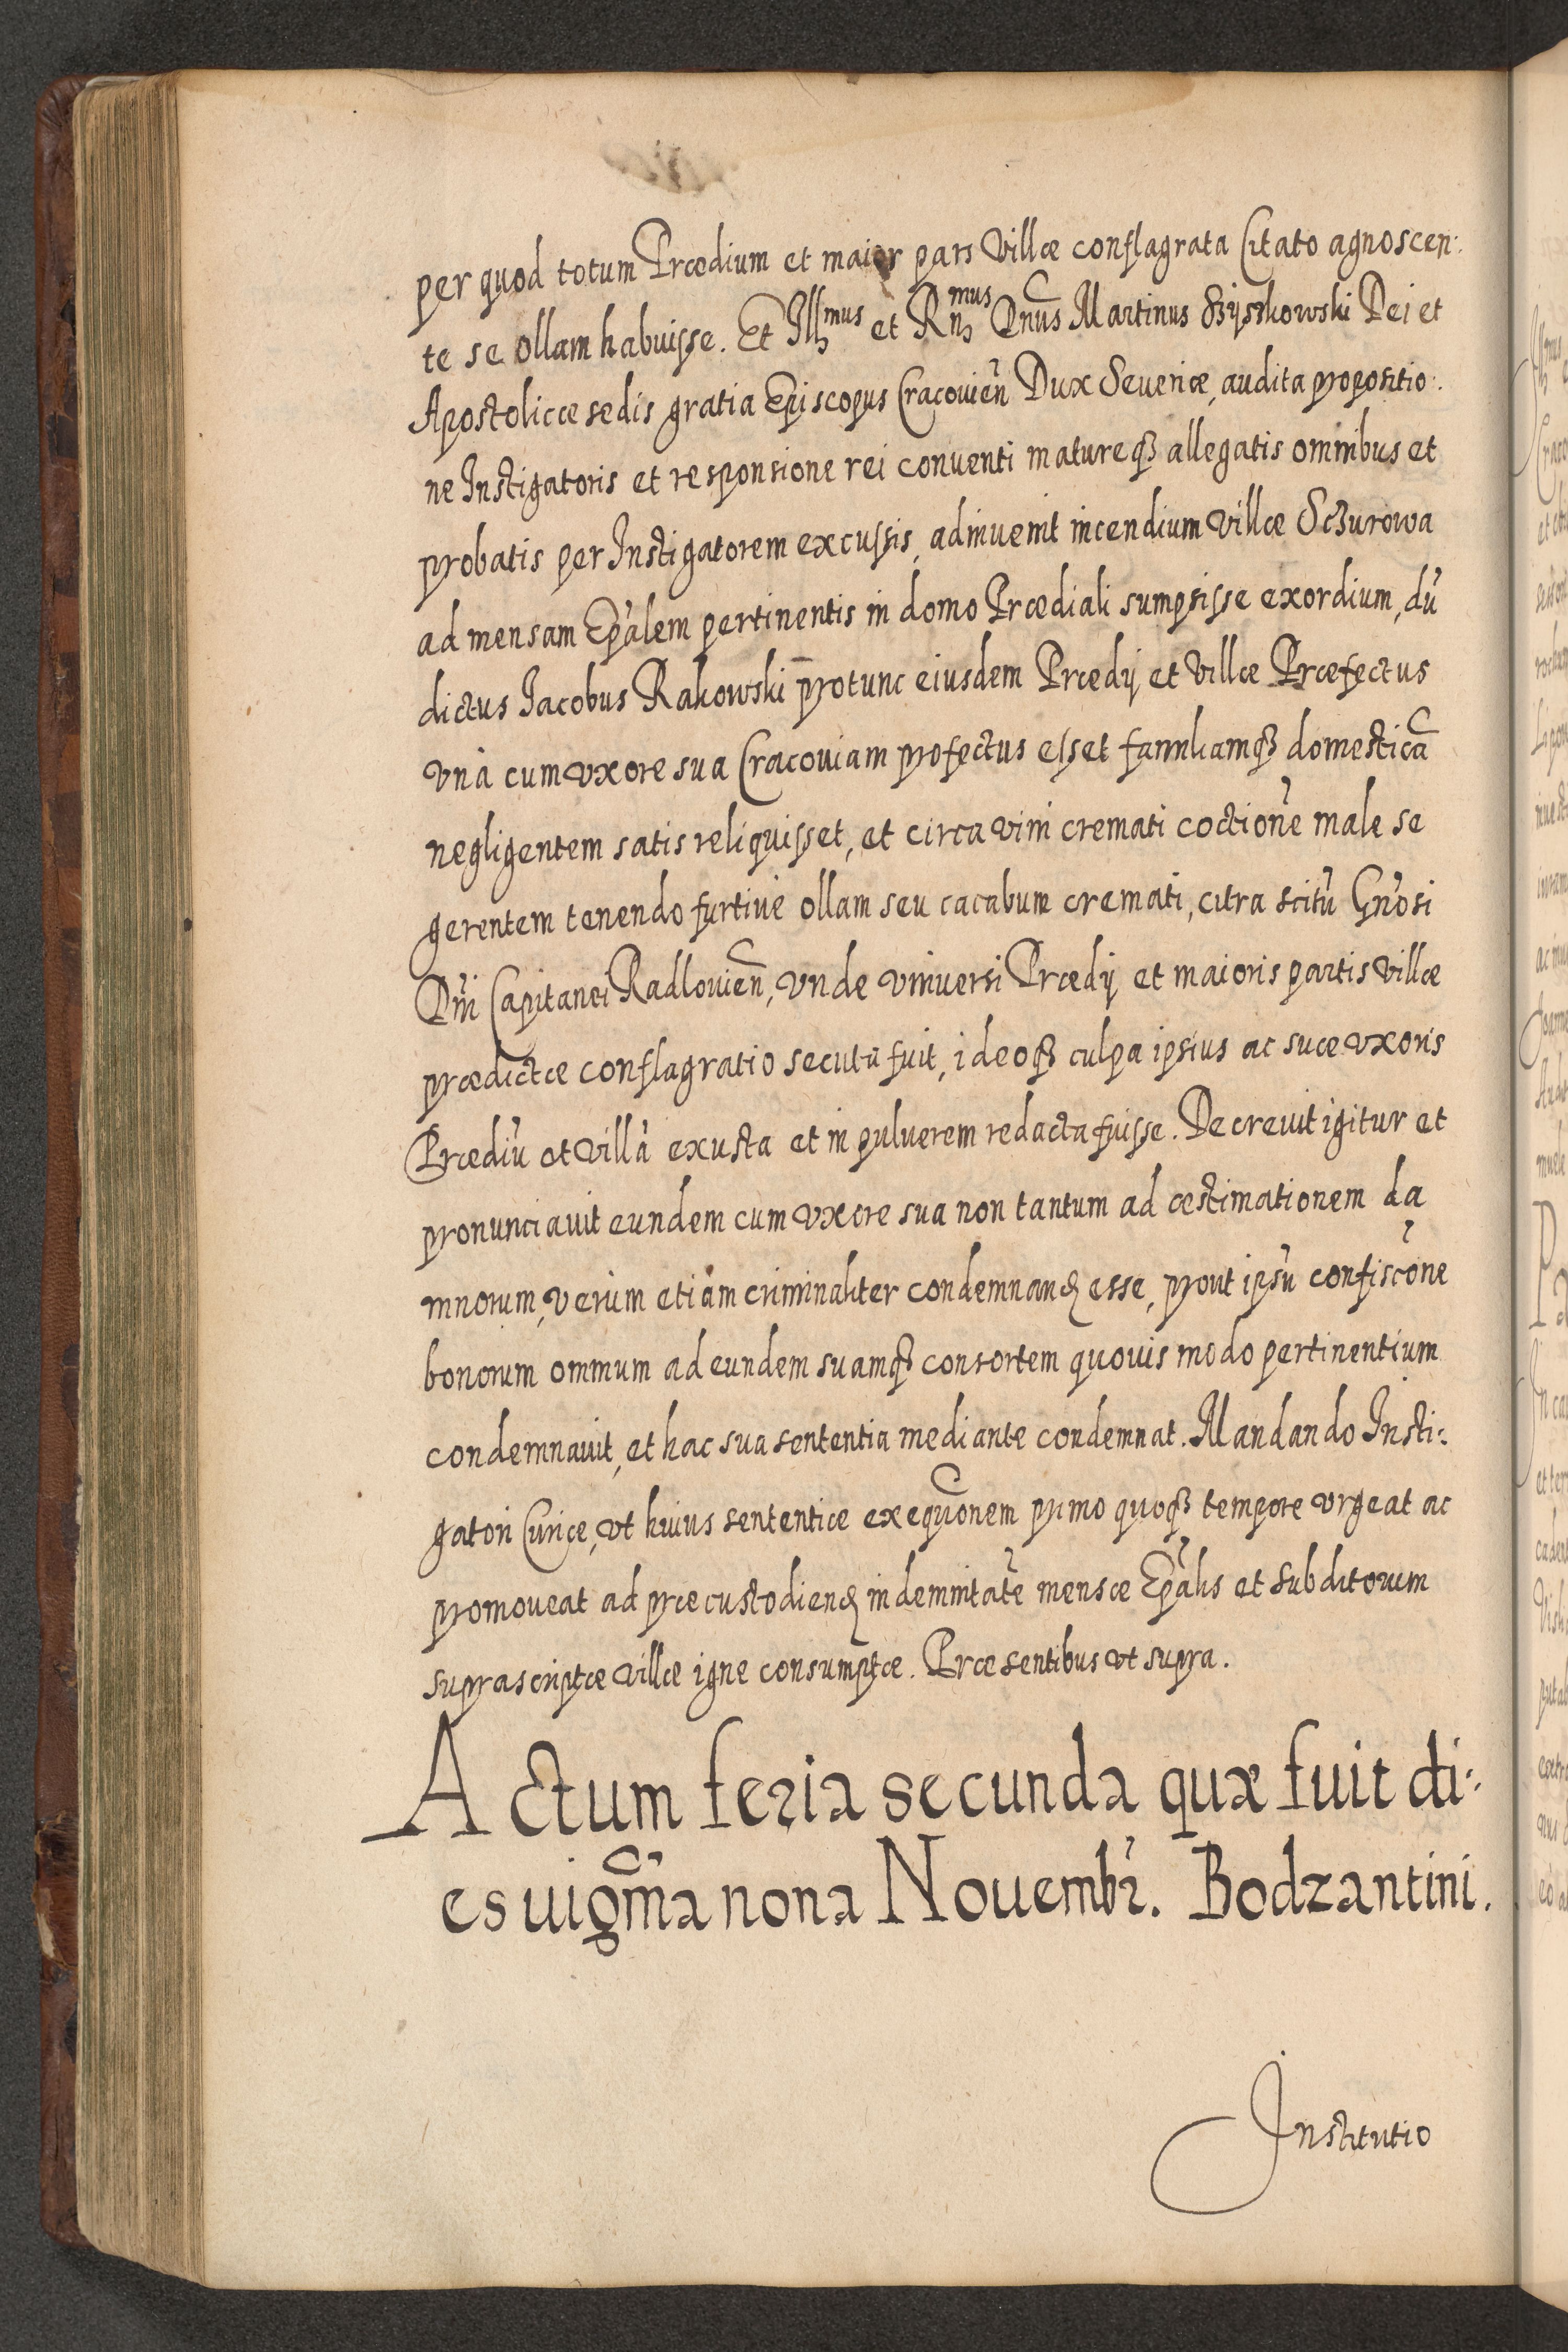 per quod totum Prædium et maior pars Villæ conflagrata Citato agnoscen:
te se ollam habuisse. Et Illmus et Rnmus Dnus Martinus Szyszkowski Dei et
Apostolicæ sedis gratia Episcopus Cracouien̄ Dux Seueriæ, audita propositio:
ne Instigatoris et responsione rei conuenti matureqꝫ allegatis omnibus et
probatis per Instigatorem excussis, adinuenit incendium Villæ Sczurowa
ad mensam Epālem pertinentis in domo Prædiali sumpsisse exordium, dū
dictus Jacobus Rakowski protunc eiusdem Prædij et Villæ Præfectus
vnà cum vxore sua Cracouiam profectus esset familiamqꝫ domesticā
negligentem satis reliquisset, et circa vini cremati coctionē male se
gerentem tenendo furtiuè ollam seu cacabum cremati, citra scitū Gnōsi
Dni Capitanei Radlouien̄, vnde vniuersi Prædij et maioris partis Villæ
prædictæ conflagratio secuta fuit, ideoqꝫ culpa ipsius ac suæ vxoris
Prædiū et Villā exusta et in puluerem redacta fuisse. Decreuit igitur et
pronunciauit eundem cum vxore sua non tantum ad æstimationem da
mnorum, verum etiam criminaliter condemnanđ esse, prout ipsū confiscōne
bonorum omnium ad eundem suamqꝫ consortem quouis modo pertinentium
condemnauit, et hac sua sententia mediante condemnat. Mandando Insti:
gatori Curiæ, vt huius sententiæ exequōnem primo quoqꝫ tempore vrgeat ac
promoueat ad præcustodienđ indemnitatē mensæ Epālis et subditorum
suprascriptæ Villæ igne consumptæ. Præsentibus vt supra.
Actum feria secunda quæ fuit di:
es uigm̄a nona Nouembr. Bodzantini.
Institutio